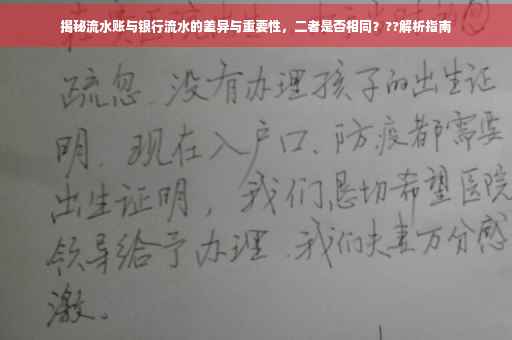 揭秘流水账与银行流水的差异与重要性，二者是否相同？??解析指南
疏忽、没有办理孩子的出生证
明、现在入户口、防疫都需要
出生证明，我们恳切希望医院
领导给予办理、我们夫妻万分感
激。